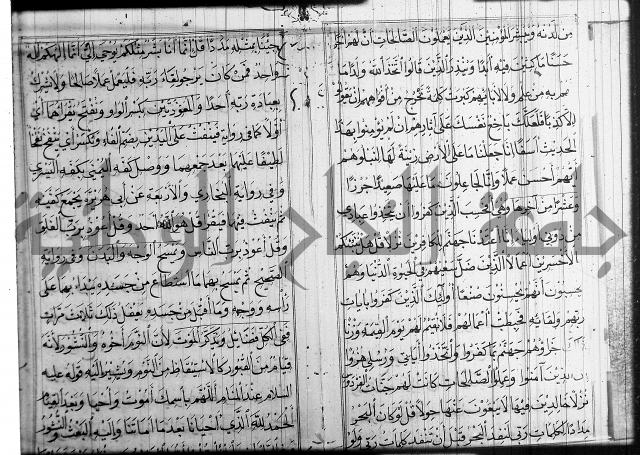 من لدنه ويبشر المؤمنين الذين يعملون الصالحات ان لهم اجرا
حسنا ماكثين فيه ابدا وينذر الذين قالوا اتخذ الله ولدا ما
لهم به من علم ولا لابائهم كبرت كلمة تخرج من افواههم ان يقولون
الا كذبا فلعلك باخع نفسك على اثارهم ان لم يؤمنوا بهذا
الحديث اسفا انا جعلنا ما على الارض زينة لها لنبلوهم
ايهم احسن عملا وانا لجاعلون ما عليها صعيدا جرزا
وعشر من اخرها وهي افحسب الذين كفروا ان يتخذوا عبادي
من دوني اولياء انا اعتدنا جهنم للكافرين نزلا قل هل ننبئكم
بالاخسرين اعمالا الذين ضل سعيهم في الحيوة الدنيا وهم
يحسبون انهم يحسنون صنعا اولئك الذين كفروا بايات
ربهم ولقائه فحبطت اعمالهم فلا نقيم لهم يوم القيمة وزنا
جزاؤهم جهنم بما كفروا واتخذوا اياتي ورسلي هزوا
ان الذين امنوا وعملوا الصالحات كانت لهم جنات الفردوس
نزلا خالدين فيها لا يبغون عنها حولا قل لو كان البحر
مدادا لكلمات ربي لنفد البحر قبل ان تنفد كلمات ربي ولو
جئنا بمثله مددا قل انما انا بشر مثلكم يوحى الي انما الهكم اله
واحد فمن كان يرجو لقاء ربه فليعمل عملا صالحا ولا يشرك
بعبادة ربه احدا والمعوذتين بكسر الواو ويفتح يقرأها اي
اولا كما في رواية فينفث على اليدين بضم الفاء وتكسر اي ينفخ نفخا
لطيفا عليهما بعد جمعهما ووصل كفه اليمنى بكفه اليسرى
وفي رواية البخاري والاربعة عن ابي هريرة يجمع كفيه
ثم ينفث فيهما فيقرأ قل هو الله احد وقل اعوذ برب الفلق
وقل اعوذ برب الناس ويمسح الوجه والبدن وفي رواية
الصحيح ثم يمسح بهما ما استطاع من جسده يبدأ بهما على
رأسه ووجهه وما اقبل من جسده يفعل ذلك ثلاث مرات
ففي الكل فضائل ويذكر الموت لان النوم اخوه والنشور لانه
قيام من القبور كالاستيقاظ من النوم ويشير اليه قوله عليه
السلام عند المنام اللهم باسمك اموت واحيا وبعد القيام
الحمد لله الذي احيانا بعدما اماتنا واليه البعث والنشور
جامعة النجاح الوطنية